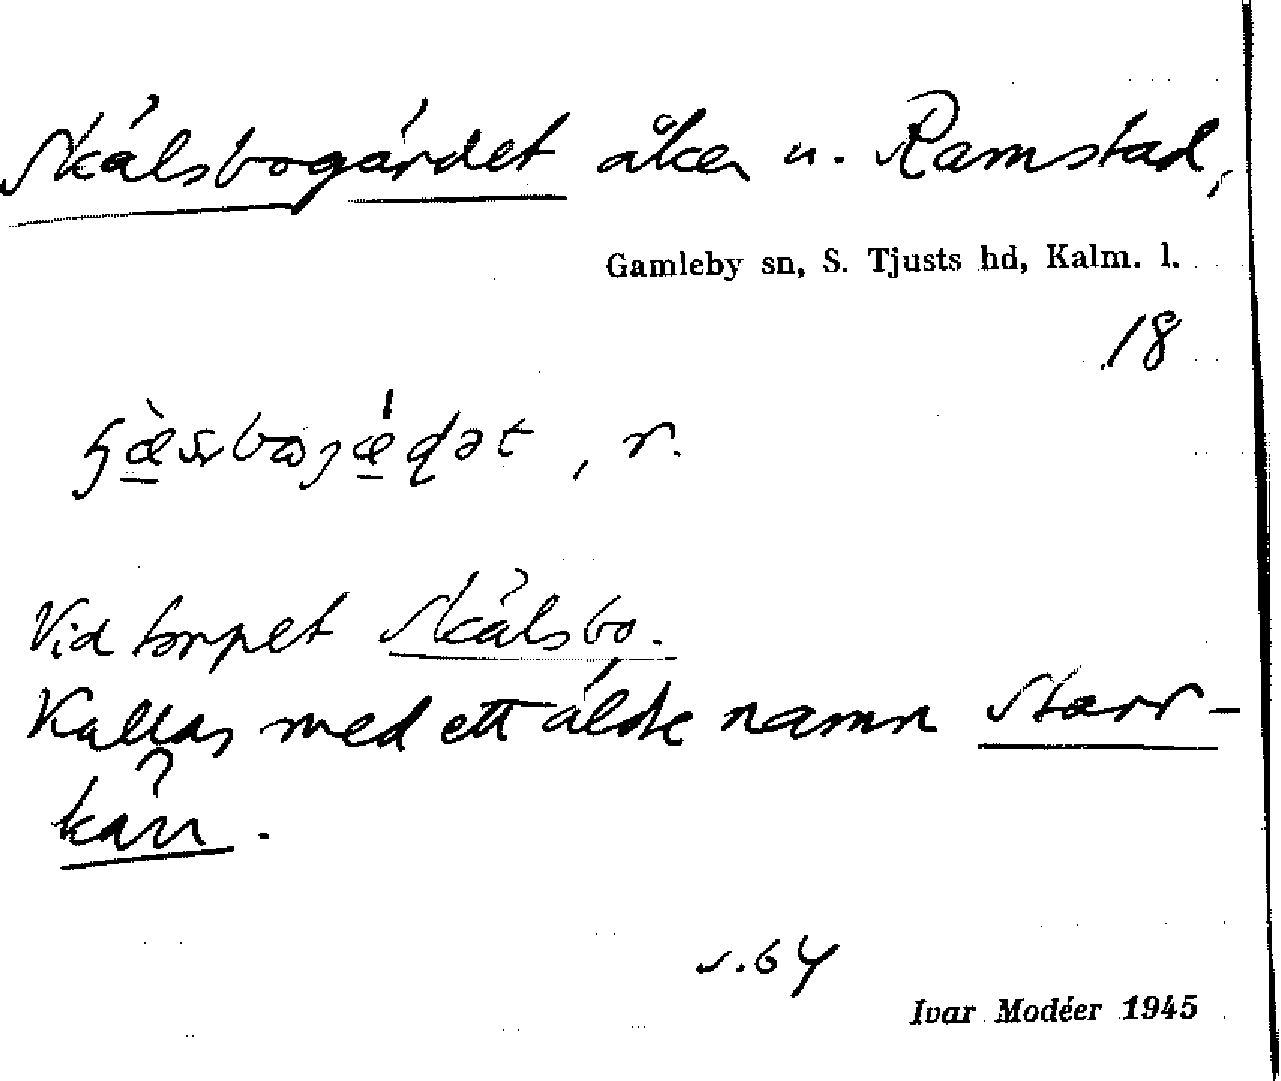 Skälsbogärdet åker u. Ramstad,
Gamleby sn, S. Tjusts hd, Kalm. l.
18
, r.
Vid torpet Skälsbo.
Kallas med ett äldre namn Starr-
kärr.
s. 64
Ivar Modéer 1945